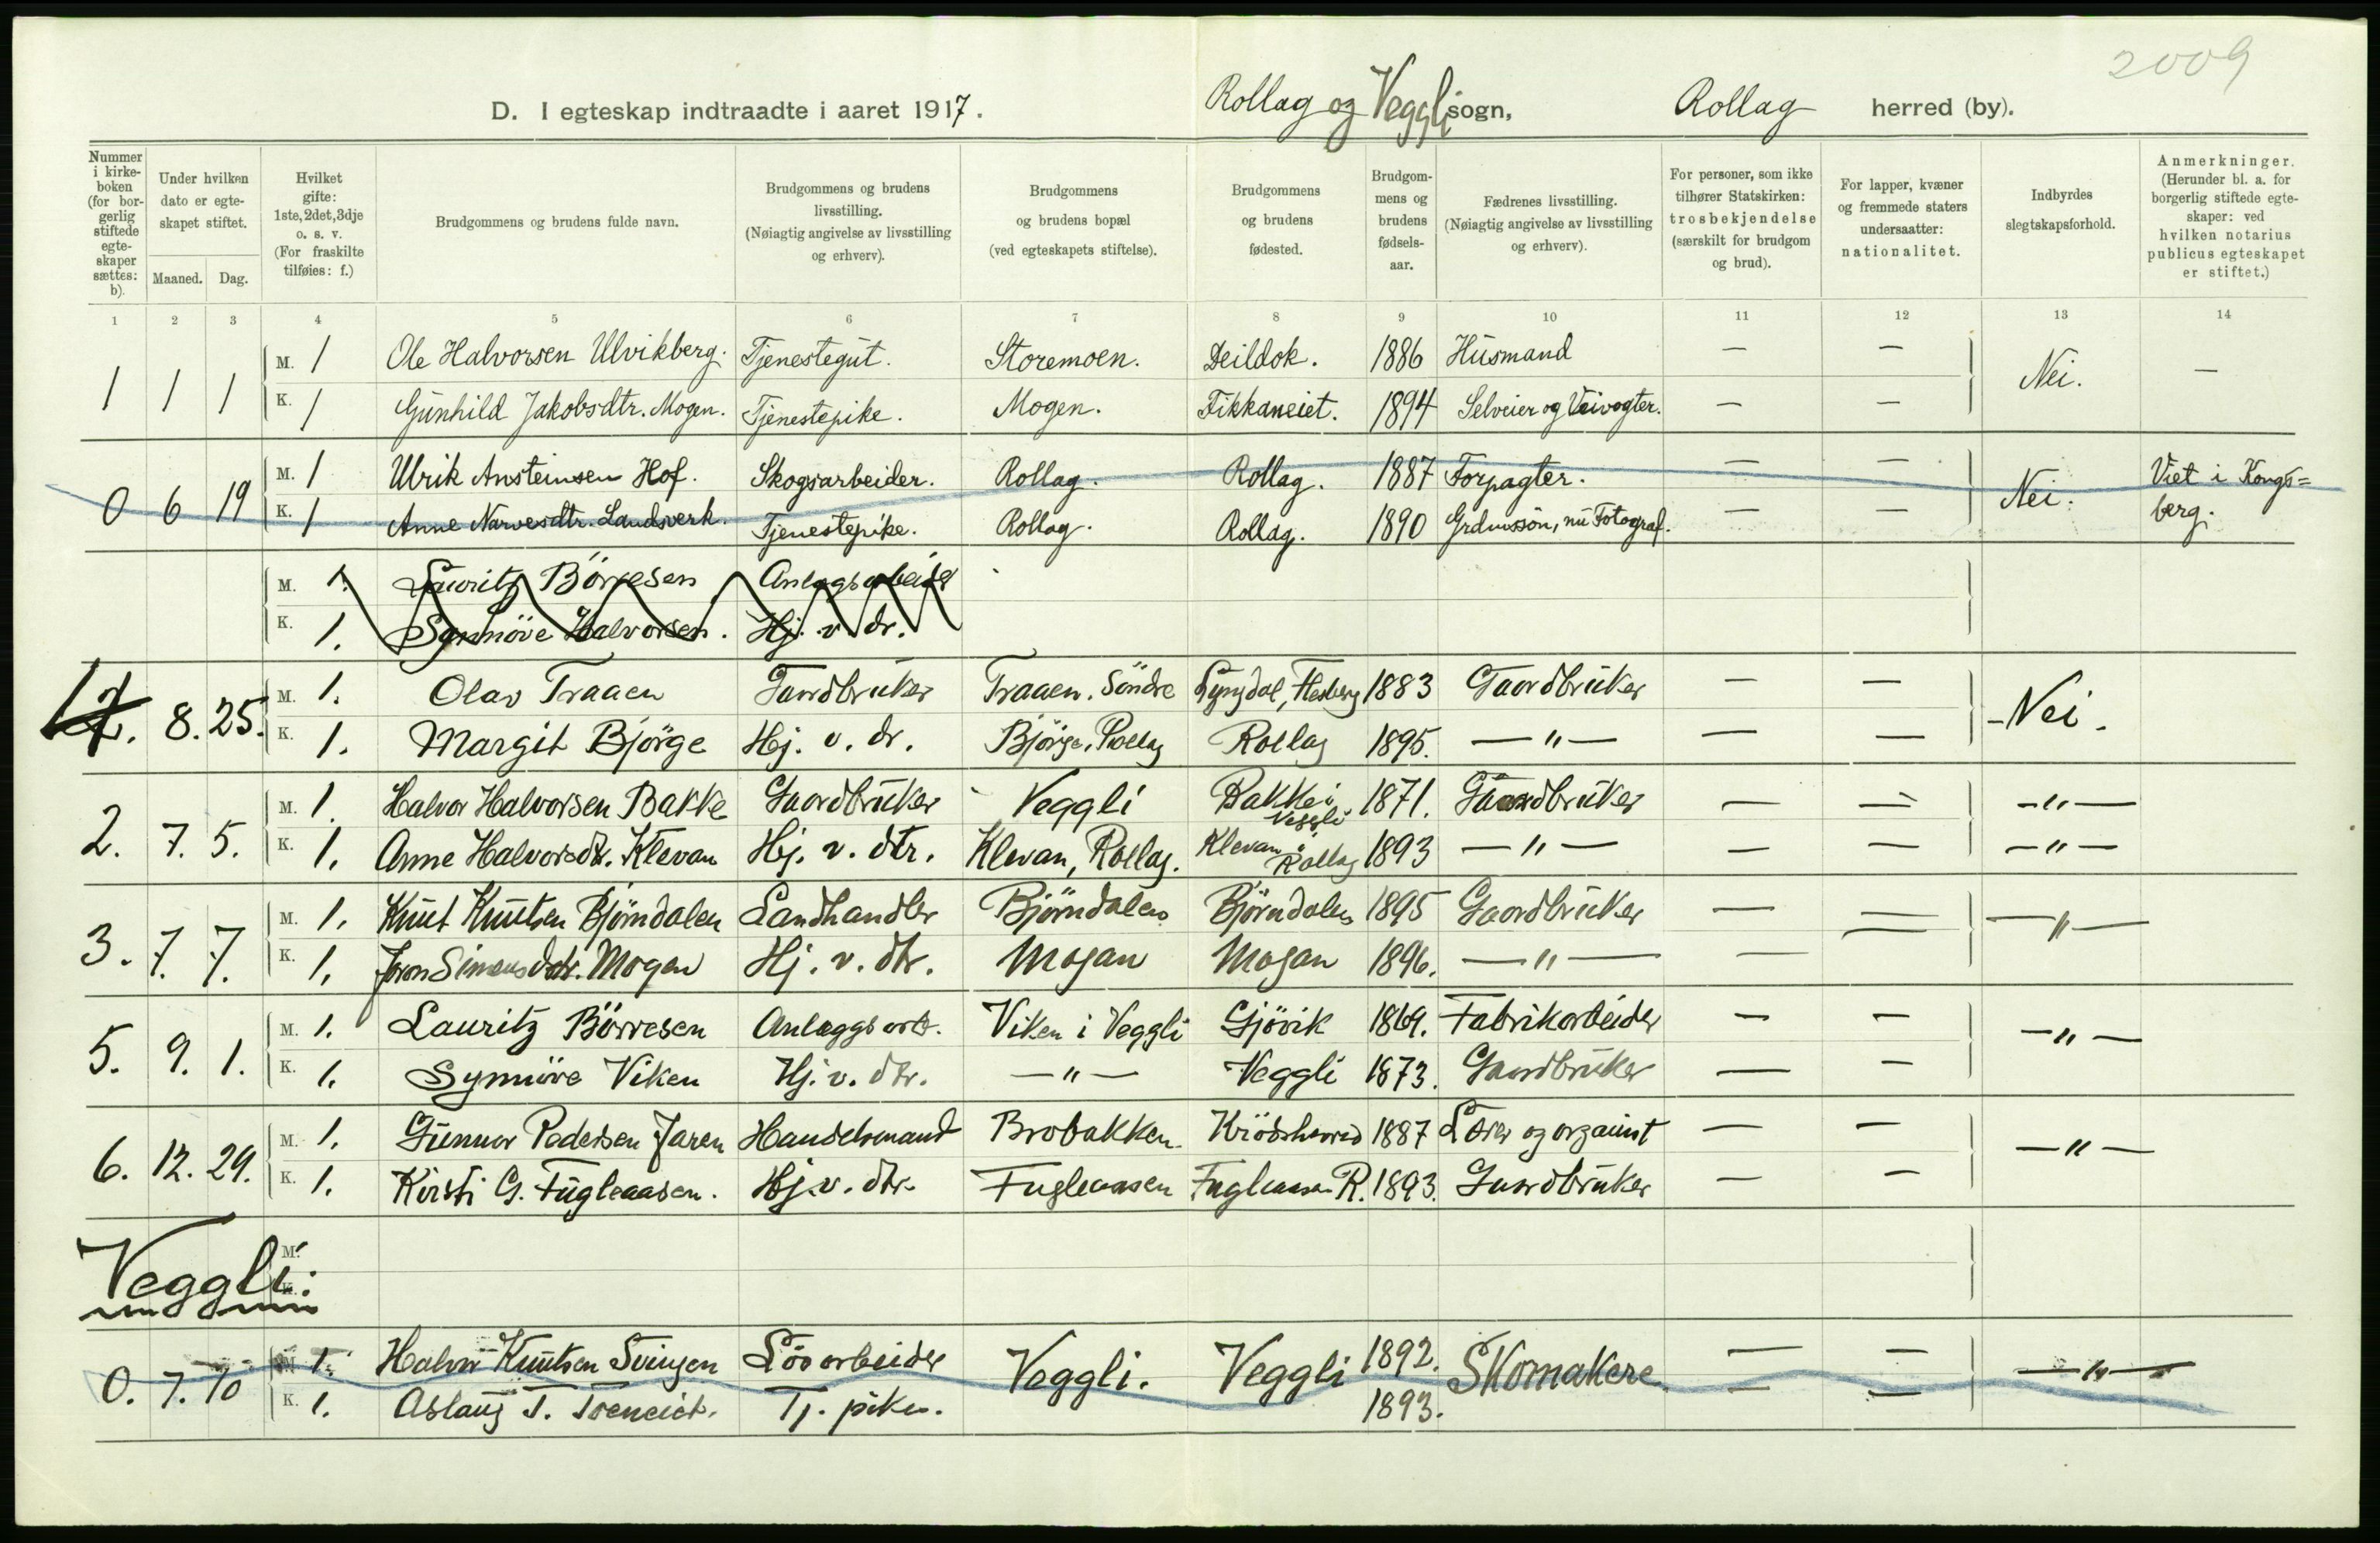 2009
D. I egteskap indtraadte i aaret 1917. Rollag og Veggli sogn, Rollag herred (by).
Nummer i kirke-boken (for bor-gerlig stiftede egte-skaper sættes: b).
Under hvilken dato er egte-skapet stiftet.
Maaned. Dag.
Hvilket gifte: 1ste, 2det, 3dje o. s. v. (For fraskilte tilføies: f.)
Brudgommens og brudens fulde navn.
Brudgommens og brudens livsstilling. (Nøiagtig angivelse av livsstilling og erhverv).
Brudgommens og brudens bopæl (ved egteskapets stiftelse).
Brudgommens og brudens fødested.
Brudgom-mens og brudens fødsels-aar.
Fædrenes livsstilling. (Nøiagtig angivelse av livsstilling og erhverv).
For personer, som ikke tilhører Statskirken: trosbekjendelse (særskilt for brudgom og brud).
For lapper, kvæner og fremmede staters undersaatter: nationalitet.
Indbyrdes slegtskapsforhold.
Anmerkninger. (Herunder bl. a. for borgerlig stiftede egte-skaper: ved hvilken notarius publicus egteskapet er stiftet.)
1 2 3 4 5 6 7 8 9 10 11 12 13 14
1 1 1 M. 1 Ole Halvorsen Ulvikberg. Tjenestegut. Storemoen. Deildok. 1886 Husmand — — Nei. —
K. 1 Gunhild Jakobsdtr. Mogen. Tjenestepike. Mogen. Fikkaneiet. 1894 Selveier og Veivogter. — —
0 6 19 M. 1 Ulrik Ansteinsen Hof. Skogsarbeider. Rollag. Rollag. 1887 Forpagter. — — Nei. Viet i Kongs=
K. 1 Anne Narvesdtr. Landsverk. Tjenestepike. Rollag. Rollag. 1890 Grdmssön, nu Fotograf. — — berg.
M. 1. Lauritz Börresen Anlægsarbeider
K. 1. Synnöve Halvorsen. Hj. v. dr.
8. 25. M. 1. Olav Traaen Gaardbruker Traaen. Söndre Lyngdal, Flesberg 1883 Gaardbruker — — - Nei.
K. 1. Margit Björge Hj. v. dr. Björge, Rollag Rollag 1895. —"— — —
2. 7. 5. M. 1. Halvor Halvorsen Bakke Gaardbruker Veggli Bakke i Veggli 1871. Gaardbruker — — —"—
K. 1. Anne Halvorsdtr. Klevan Hj. v. dtr. Klevan, Rollag. Klevan i Rollag 1893 —"— — — —"—
3. 7. 7. M. 1. Knut Knutsen Björndalen Landhandler Björndalen Björndalen 1895 Gaardbruker — — —"—
K. 1. Joron Simensdatr. Mogen Hj. v. dtr. Mogan Mogan 1896. —"— — —
5. 9. 1. M. 1. Lauritz Börresen Anlæggsarb. Viken i Veggli Gjövik 1869. Fabrikarbeider — — —"—
K. 1. Synnöve Viken Hj. v. dtr. —"— Veggli 1873. Gaardbruker — —
6. 12. 29. M. 1. Gunnar Pedersen Jaren Handelsmand Brobakken Krödsherred 1887 Lærer og organist — — —"—
K. 1. Kirsti G. Fugleaasen. Hj. v. dtr. Fugleaasen Fugleaasen R. 1893. Gaardbruker — —
Veggli: M. K.
0. 7. 10 M. 1. Halvor Knutsen Svingen Lösarbeider Veggli. Veggli 1892. Skomakere — — —"—
K. 1. Aslaug T. Tj. pike. 1893. — —